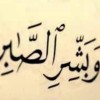 وَبَشِّرِ ٱلصَّـٰبِرِ